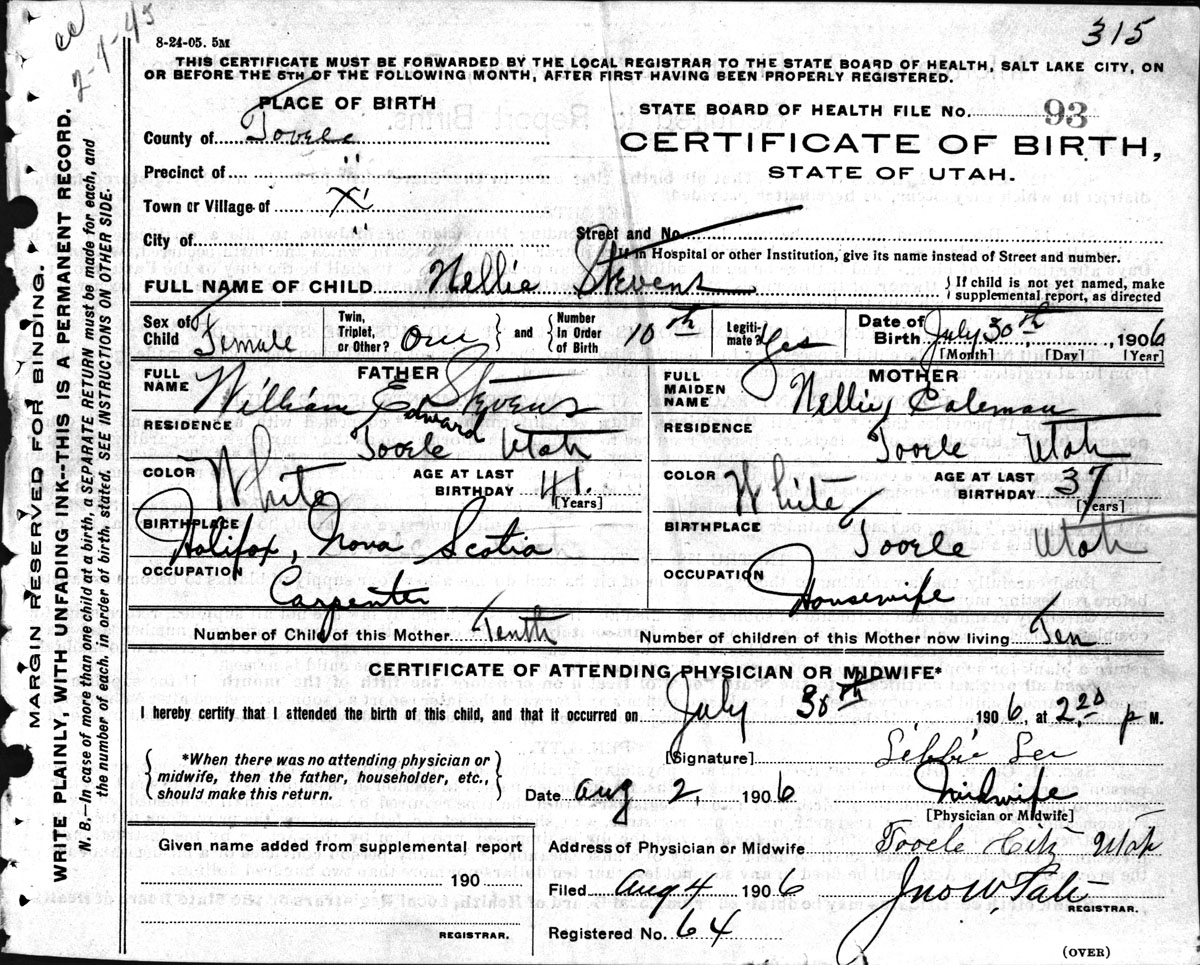 315
cc
2-4-43
8-24-05. 5M
THIS CERTIFICATE MUST BE FORWARDED BY THE LOCAL REGISTRAR TO THE STATE BOARD OF HEALTH, SALT LAKE CITY, ON
OR BEFORE THE 5TH OF THE FOLLOWING MONTH, AFTER FIRST HAVING BEEN PROPERLY REGISTERED.
PLACE OF BIRTH
STATE BOARD OF HEALTH FILE No. 93
County of Tooele
CERTIFICATE OF BIRTH,
STATE OF UTAH.
Precinct of "
Town or Village of
City of "
Street and No.
If in Hospital or other Institution, give its name instead of Street and number.
FULL NAME OF CHILD Nellie Stevens
If child is not yet named, make
supplemental report, as directed
Sex of Child Female
Twin, Triplet, or Other? One and Number In Order of Birth 10th
Legitimate? Yes
Date of Birth July 30th, 1906
[Month] [Day] [Year]
FATHER
FULL NAME William Edward Stevens
MOTHER
FULL MAIDEN NAME Nellie Coleman
RESIDENCE Tooele Utah
RESIDENCE Tooele Utah
COLOR White AGE AT LAST BIRTHDAY 41. [Years]
COLOR White AGE AT LAST BIRTHDAY 37 [Years]
BIRTHPLACE Halifox, Nova Scotia
BIRTHPLACE Tooele Utah
OCCUPATION Carpenter
OCCUPATION Housewife
Number of Child of this Mother Tenth Number of children of this Mother now living Ten
CERTIFICATE OF ATTENDING PHYSICIAN OR MIDWIFE*
I hereby certify that I attended the birth of this child, and that it occurred on July 30th, 1906, at 2.20 p M.
*When there was no attending physician or
midwife, then the father, householder, etc.,
should make this return.
[Signature] Libbie Lee
Date Aug 2, 1906 Midwife
[Physician or Midwife]
Given name added from supplemental report
190
REGISTRAR.
Address of Physician or Midwife Tooele City Utah
Filed Aug 4 1906 Jno W. Tate
REGISTRAR.
Registered No. 64
(OVER)
MARGIN RESERVED FOR BINDING.
WRITE PLAINLY, WITH UNFADING INK--THIS IS A PERMANENT RECORD.
N. B.—In case of more than one child at a birth, a SEPARATE RETURN must be made for each, and
the number of each, in order of birth, stated. SEE INSTRUCTIONS ON OTHER SIDE.